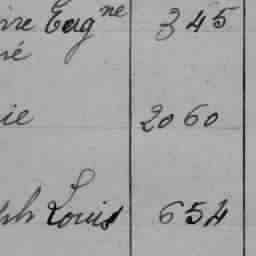 rre Eug ne 345
ré
ie 2060
ph Louis 654